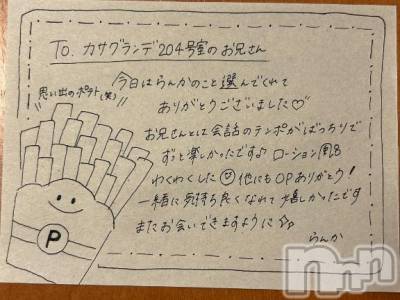 To. カサグランデ204号室のお兄さん
今日はらんかのこと選んでくれて
ありがとうございました♡
思い出のポテト(笑)
お兄さんとは会話のテンポがばっちりで
ずっと楽しかったです♪ ローション風呂
わくわくした☺ 他にもOPありがとう!
一緒に気持ち良くなれて嬉しかったです
またお会いできますように☆
らんか
P